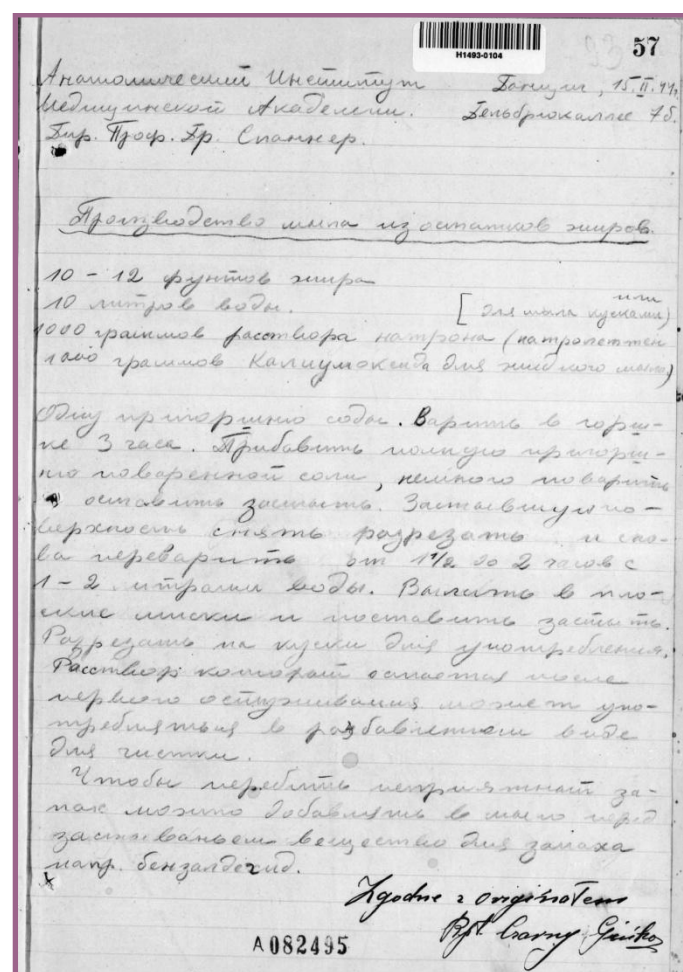 H1493-0104
93 57
Анатомический Институт Данциг, 15.II.44.
Медицинской Академии. Дельбрюкаллее 7б.
Дир. Проф. Др. Спаннер.
Производство мыла из остатков жиров.
10 – 12 фунтов жира
10 литров воды. или
1000 граммов расствора натрона [для мыла кусками)
(натронлет
1000 граммов Калиумоксида для жидкого мыла)
Одну пригоршню соды. Варить в горш-
ке 3 часа. Прибавить полную пригорш-
ню поваренной соли, немного поварить
и оставить застыть. Застывшую по-
верхность снять разрезать и сно-
ва переварить от 1 1/2 до 2 часов с
1 – 2 литрами воды. Вылить в пло-
ские миски и поставить застыть.
Разрезать на куски для употребления.
Расствор который остается после
первого остуживания может упо-
требляться в разбавленном виде
для чистки.
Чтобы перебить неприятный за-
пах можно добавлять в мыло перед
застываньем вещество для запаха
напр. бензалдехид.
Zgodne z oryginałem
A082495